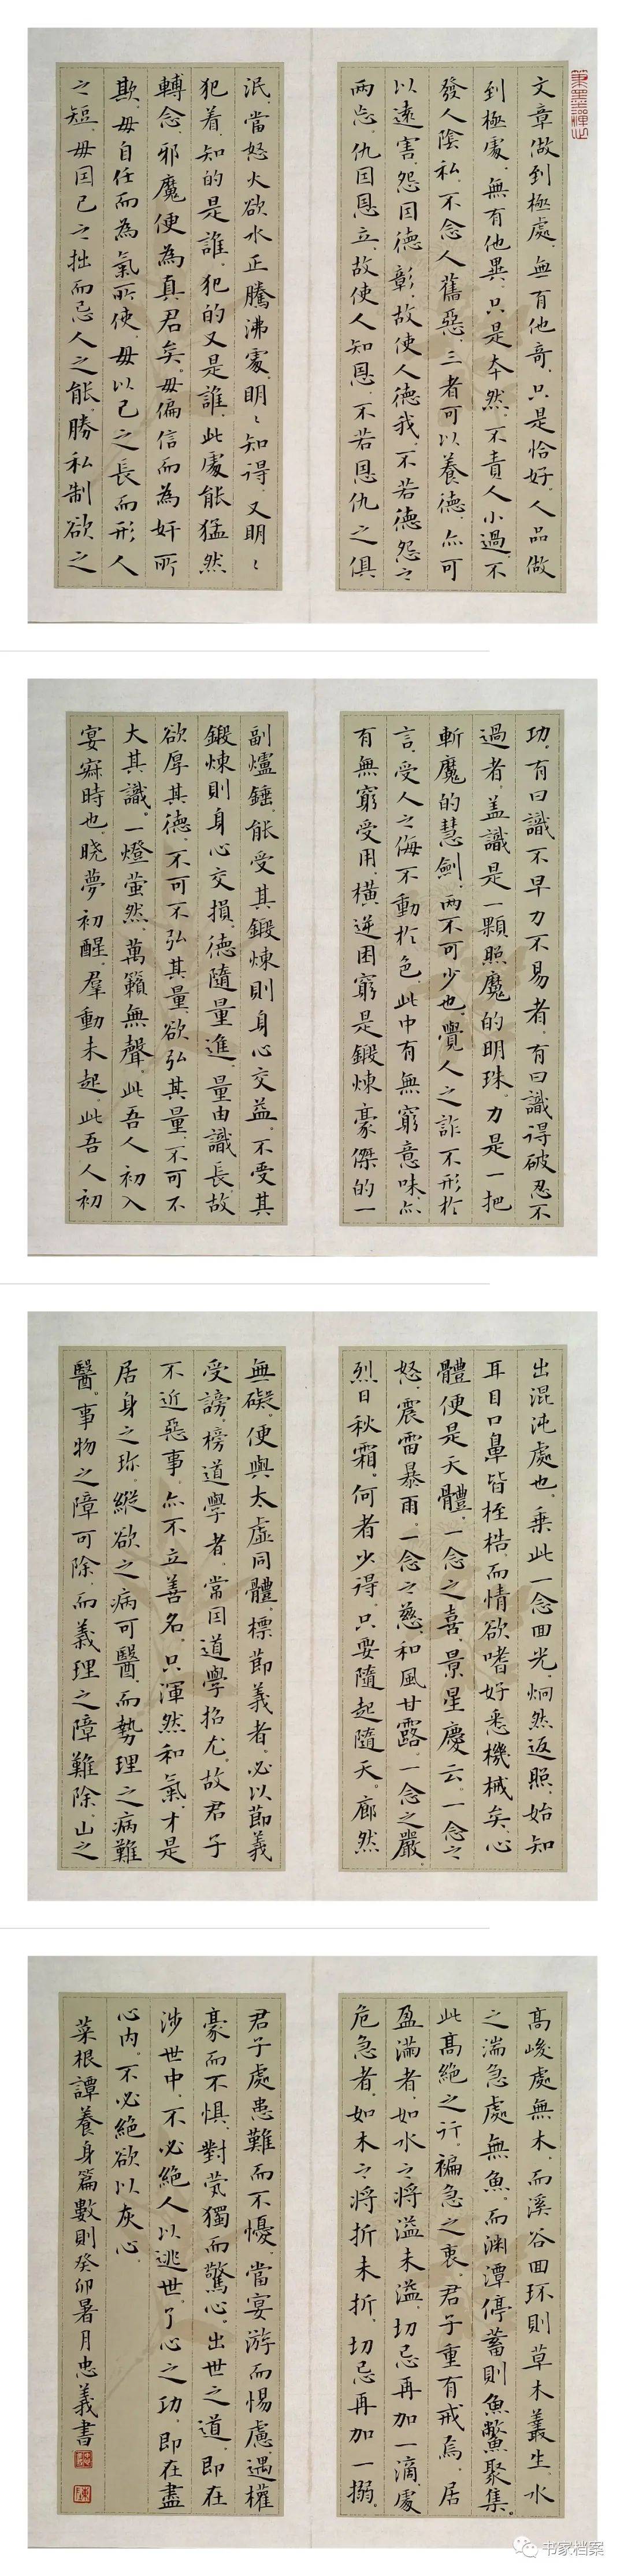 文章做到極處，無有他竒，只是恰好。人品做
到極處，無有他異，只是本然。不責人小過，不
發人陰私，不念人舊惡，三者可以養德，亦可
以遠害。怨因德彰，故使人德我，不若德怨之
兩忘。仇因恩立，故使人知恩，不若恩仇之俱
泯。當怒火欲水正騰沸處，明〻知得，又明〻
犯着，知的是誰，犯的又是誰，此處能猛然
轉念，邪魔便為真君矣。毋偏信而為奸所
欺，毋自任而為氣所使，毋以己之長而形人
之短，毋因己之拙而忌人之能。勝私制欲之
功，有曰識不早力不易者，有曰識得破忍不
過者，蓋識是一顆照魔的明珠，力是一把
斬魔的慧劍，兩不可少也。覺人之詐不形於
言，受人之侮不動於色，此中有無窮意味，亦
有無窮受用。橫逆困窮是鍛煉豪傑的一
副爐錘，能受其鍛煉則身心交益，不受其
鍛煉則身心交損。德隨量進，量由識長，故
欲厚其德，不可不弘其量，欲弘其量，不可不
大其識。一燈萤然，萬籟無聲，此吾人初入
宴寂時也，曉夢初醒，羣動未起，此吾人初
出混沌處也。乗此一念回光，炯然返照，始知
耳目口鼻皆桎梏，而情欲嗜好悉機械矣。心
體便是天體，一念之喜，景星慶云，一念之
怒，震雷暴雨，一念之慈，和風甘露，一念之嚴，
烈日秋霜。何者少得，只要隨起隨天，廊然
無礙，便與太虛同體。標節義者，必以節義
受謗，榜道學者，常因道學招尤。故君子
不近惡事，亦不立善名，只渾然和氣，才是
居身之珎。縱欲之病可醫，而勢理之病難
醫。事物之障可除，而義理之障難除。山之
高峻處無木，而溪谷回环則草木叢生，水
之湍急處無魚，而渊潭停蓄則魚鱉聚集。
此高絶之行，褊急之衷，君子重有戒焉。居
盈滿者，如水之將溢未溢，切忌再加一滴，處
危急者，如木之將折未折，切忌再加一搦。
君子處患難而不憂，當宴游而惕慮，遇權
豪而不惧，對茕獨而驚心。出世之道，即在
涉世中，不必絶人以逃世，了心之功，即在盡
心内，不必絶欲以灰心。
菜根譚養身篇數則癸卯暑月忠義書
书家档案